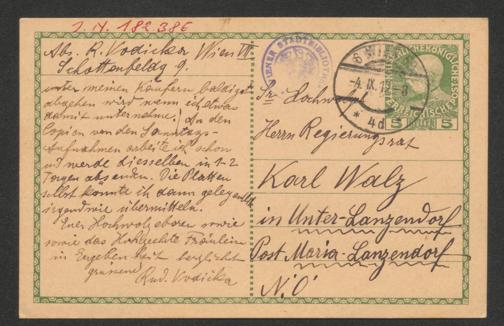 I.N. 182.386
Abs. R. Vodicka Wien VII
Schottenfeldg 9.
unter meinen Käufern baldigst
abgehen wird wenn ich etwa
damit unternehme. An den
Copien von den Sonntags-
Aufnahmen arbeite ich schon
und werde dieselben in 1-2
Tagen absenden. Die Platten
selbst könnte ich dann gelegentlich
irgendwie übermitteln.
Euer Hochwolgeboren sowie
sowie das Hochgeehrte Fräulein
in Ergebenheit herzlichst
grüssend
Rud. Vodicka
WIENER STADTBIBLIOTHEK
WIEN
4d
5
Sr. Hochwol
Herrn Regierungsrat
Karl Walz
in Unter-Lanzendorf
Post Maria-Lanzendorf
N.Ö